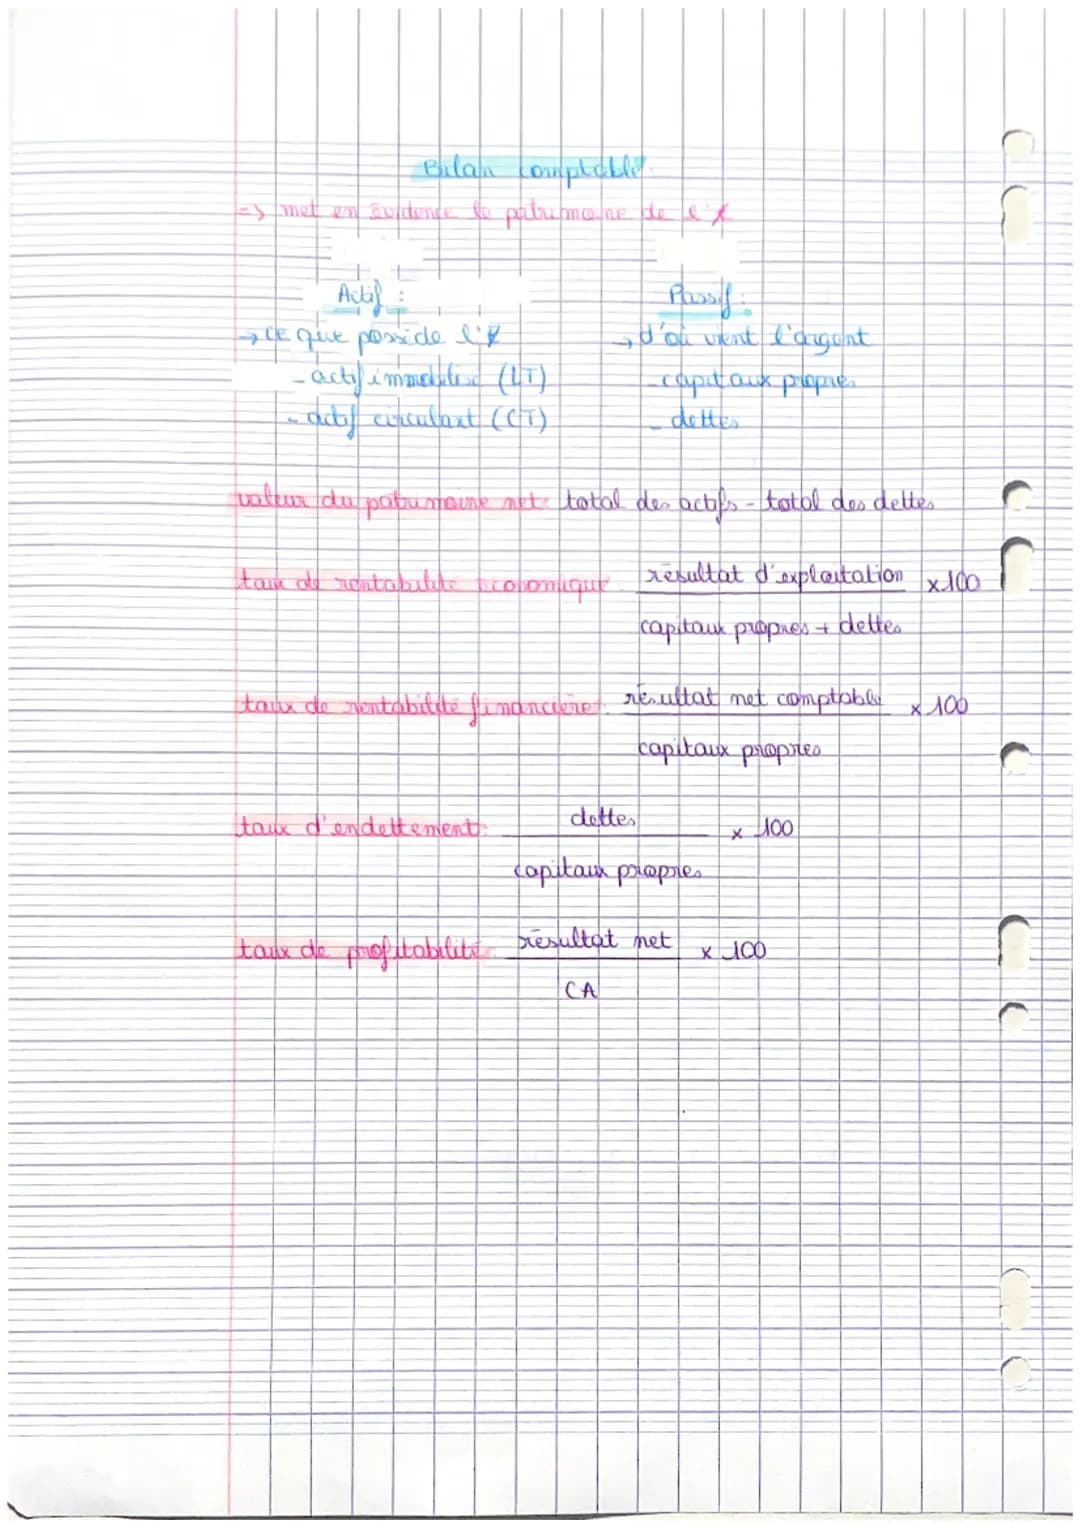 Bilan comptable
=> met en évidence le patrimoine de l'E
Actif :
Passif :
→ ce que possède l'E
→ d'où vient l'argent
- actif immobilisé (LT)
- capitaux propres
- actif circulant (CT)
- dettes
valeur du patrimoine net: total des actifs - total des dettes
taux de rentabilité économique: résultat d'exploitation x 100
capitaux propres + dettes
taux de rentabilité financière: résultat net comptable x 100
capitaux propres
taux d'endettement: dettes x 100
capitaux propres
taux de profitabilité: résultat net x 100
CA